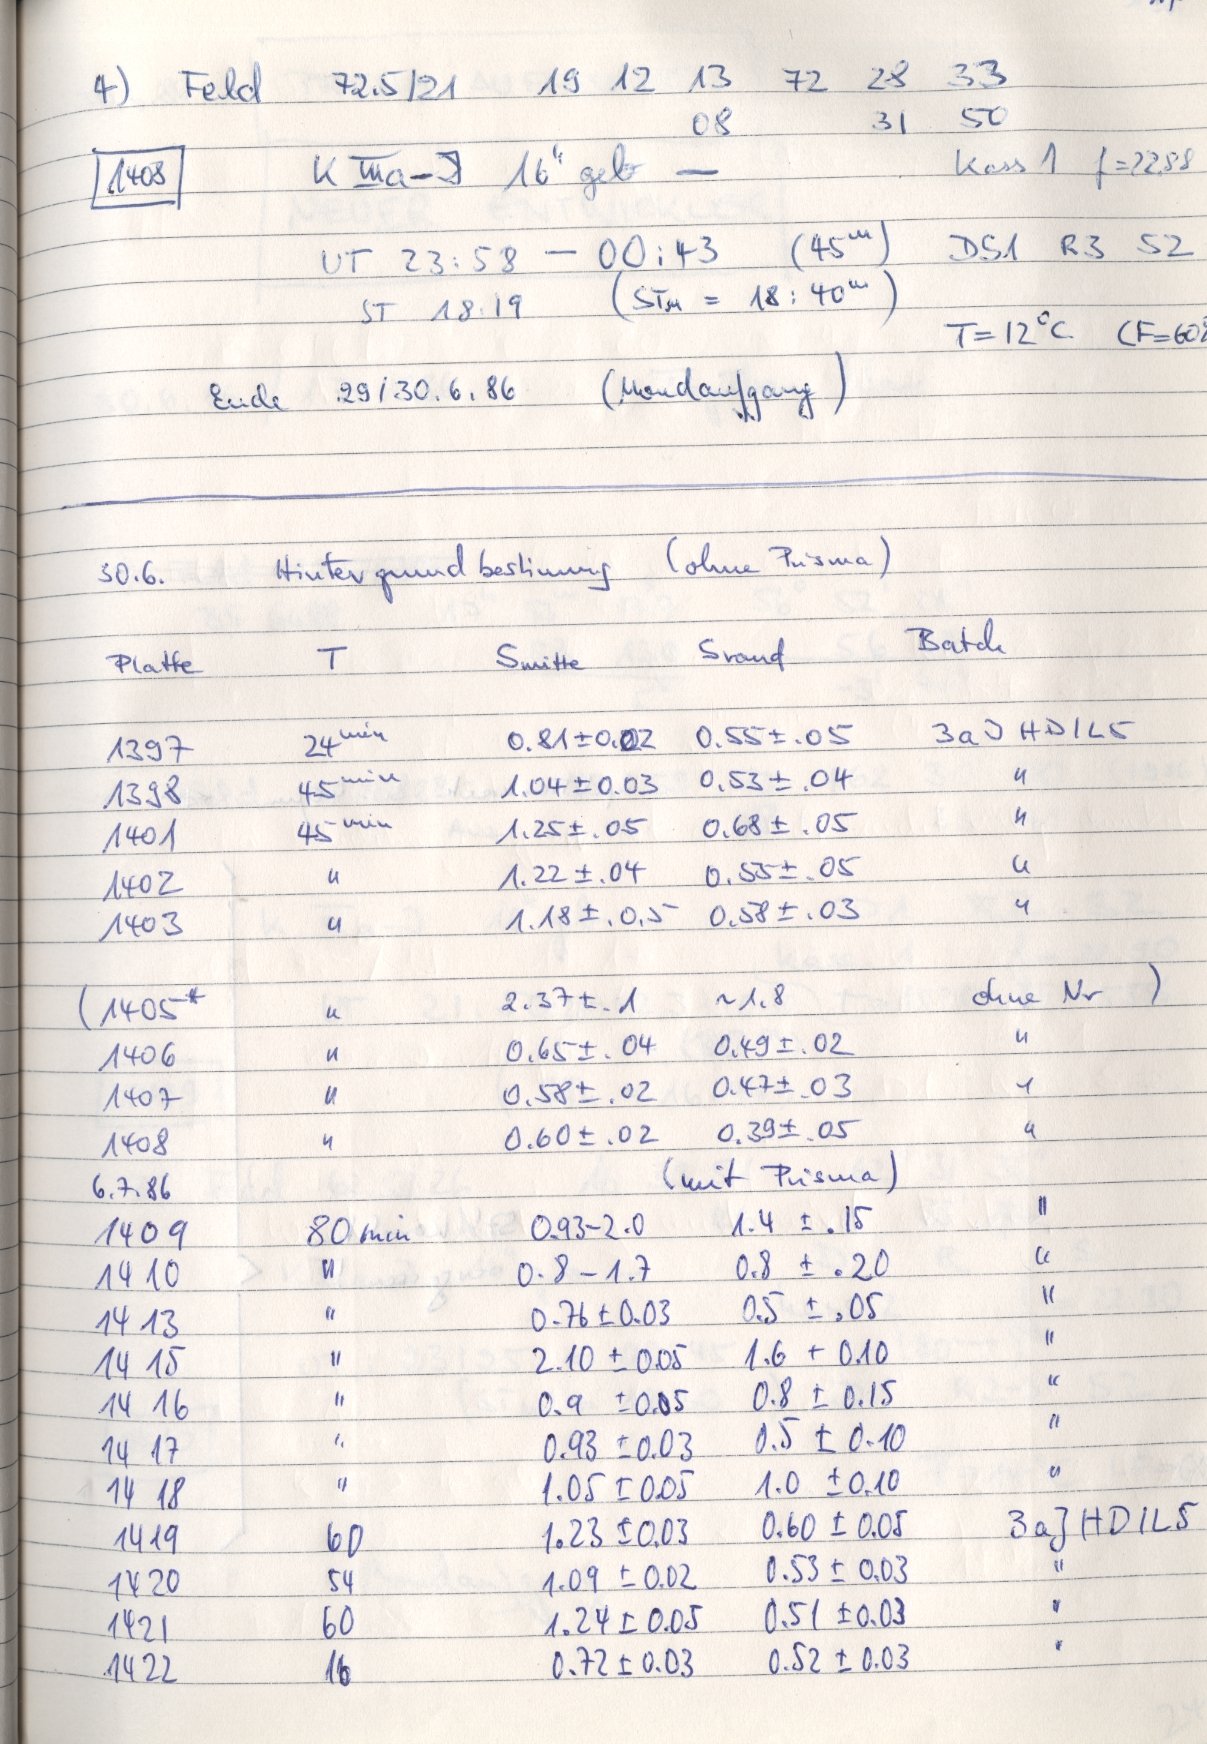 4) Feld 72.5/21 19 12 13 72 28 33
08 31 50
1408 K IIIa-J 16" geb — Kass 1 f=2288
UT 23:58 — 00:43 (45m) DS1 R3 S2
ST 18:19 (STM = 18:40m)
T=12°C (F=60%
Ende 29/30.6.86 (Mondaufgang)
30.6. Hintergrundbestimmung (ohne Prisma)
Platte T Smitte Srand Batch
1397 24min 0.81±0.02 0.55±.05 3aJ HD1L5
1398 45min 1.04±0.03 0.53±.04 "
1401 45min 1.25±.05 0.68±.05 "
1402 " 1.22±.04 0.55±.05 "
1403 " 1.18±.0.5 0.58±.03 "
(1405* " 2.37±.1 ~1.8 ohne Nr )
1406 " 0.65±.04 0.49±.02 "
1407 " 0.58±.02 0.47±.03 "
1408 " 0.60±.02 0.39±.05 "
6.7.86 (mit Prisma)
1409 80min 0.93-2.0 1.4 ±.15 "
1410 " 0.8-1.7 0.8 ±.20 "
1413 " 0.76±0.03 0.5 ±.05 "
1415 " 2.10 ±0.05 1.6 + 0.10 "
1416 " 0.9 ±0.05 0.8 ± 0.15 "
1417 " 0.93 ±0.03 0.5 ± 0.10 "
1418 " 1.05 ±0.05 1.0 ±0.10 "
1419 60 1.23 ±0.03 0.60 ± 0.05 3aJ HD1L5
1420 54 1.09 ±0.02 0.53 ± 0.03 "
1421 60 1.24 ± 0.05 0.51 ±0.03 "
1422 16 0.72 ± 0.03 0.52 ± 0.03 "